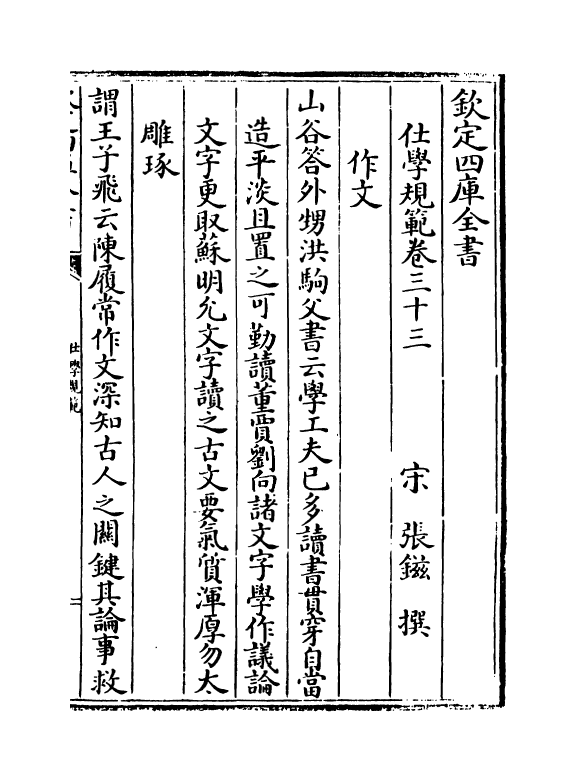 欽定四庫全書
仕學規範卷三十三　宋　張鎡　撰
作文
山谷答外甥洪駒父書云學工夫已多讀書貫穿自當
造平淡且置之可勤讀董賈劉向諸文字學作議論
文字更取蘇明允文字讀之古文要氣質渾厚勿太
雕琢
謂王子飛云陳履常作文深知古人之關鍵其論事救
仕學規範